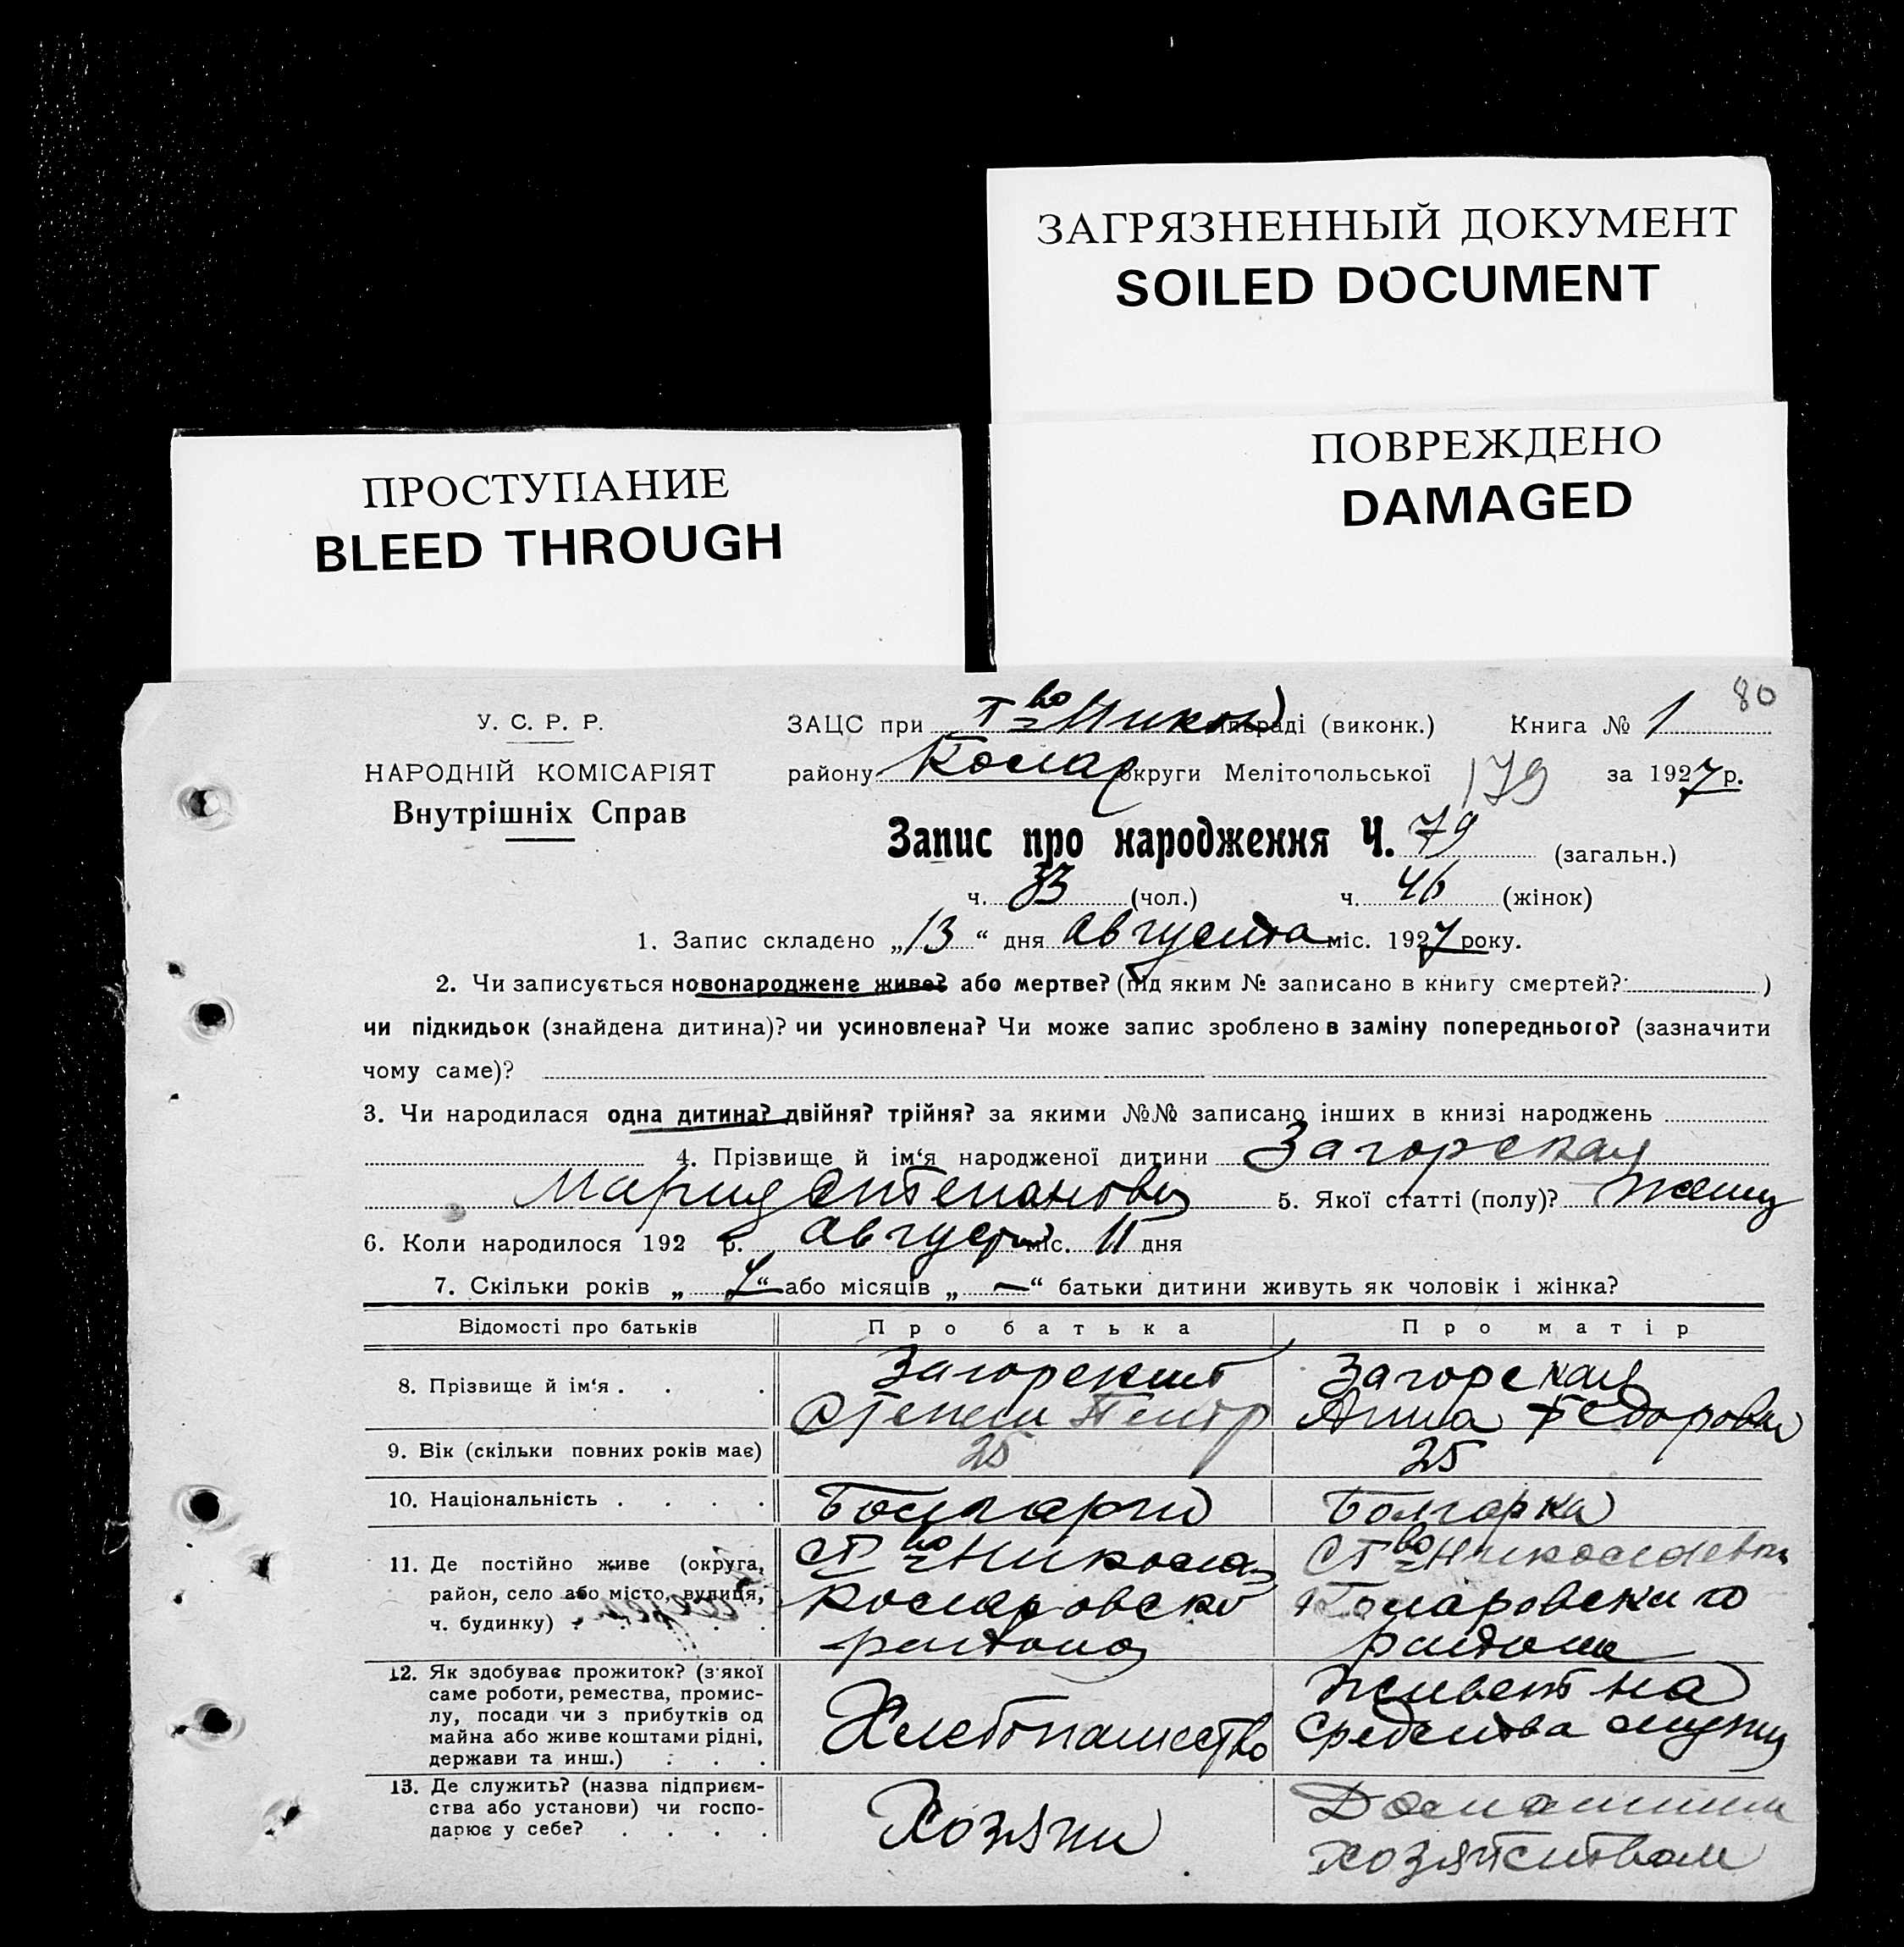 ЗАГРЯЗНЕННЫЙ ДОКУМЕНТ
SOILED DOCUMENT
ПОВРЕЖДЕНО
DAMAGED
ПРОСТУПАНИЕ
BLEED THROUGH
80
У. С. Р. Р.
НАРОДНІЙ КОМІСАРІЯТ
Внутрішніх Справ
ЗАЦС при раді (виконк.) Книга № 1
району Колар округи Мелітопольської 179 за 1927 р.
Запис про народження Ч. 79 (загальн.)
ч. 33 (чол.) ч. 46 (жінок)
1. Запис складено „13“ дня августа міс. 1927 року.
2. Чи записується новонароджене живе? або мертве? (під яким № записано в книгу смертей? )
чи підкидьок (знайдена дитина)? чи усиновлена? Чи може запис зроблено в заміну попереднього? (зазначити
чому саме)?
3. Чи народилася одна дитина? двійня? трійня? за якими №№ записано інших в книзі народжень
4. Прізвище й ім‘я народженої дитини Загорская
Мария Степановна 5. Якої статті (полу)? женщ
6. Коли народилося 192 р. август міс. 11 дня
7. Скільки років „ 7 “ або місяців „ — “ батьки дитини живуть як чоловік і жінка?
Відомості про батьків Про батька Про матір
8. Прізвище й ім‘я . . . Загорский Загорская
Степан Петр Анна Федоровна
9. Вік (скільки повних років має) 25 25
10. Національність . . . . Болгарин Болгарка
11. Де постійно живе (округа, район, село або місто, вулиця, ч. будинку)
Коларовского Коларовского
района района
12. Як здобуває прожиток? (з‘якої
саме роботи, ремества, промис-
лу, посади чи з прибутків од
майна або живе коштами рідні,
держави та инш.) . . .
Хлебопашество Живет на
средства мужа
13. Де служить? (назва підприєм-
ства або установи) чи госпо-
дарює у себе? . . . .
Хозяин Домашним
хозяйством